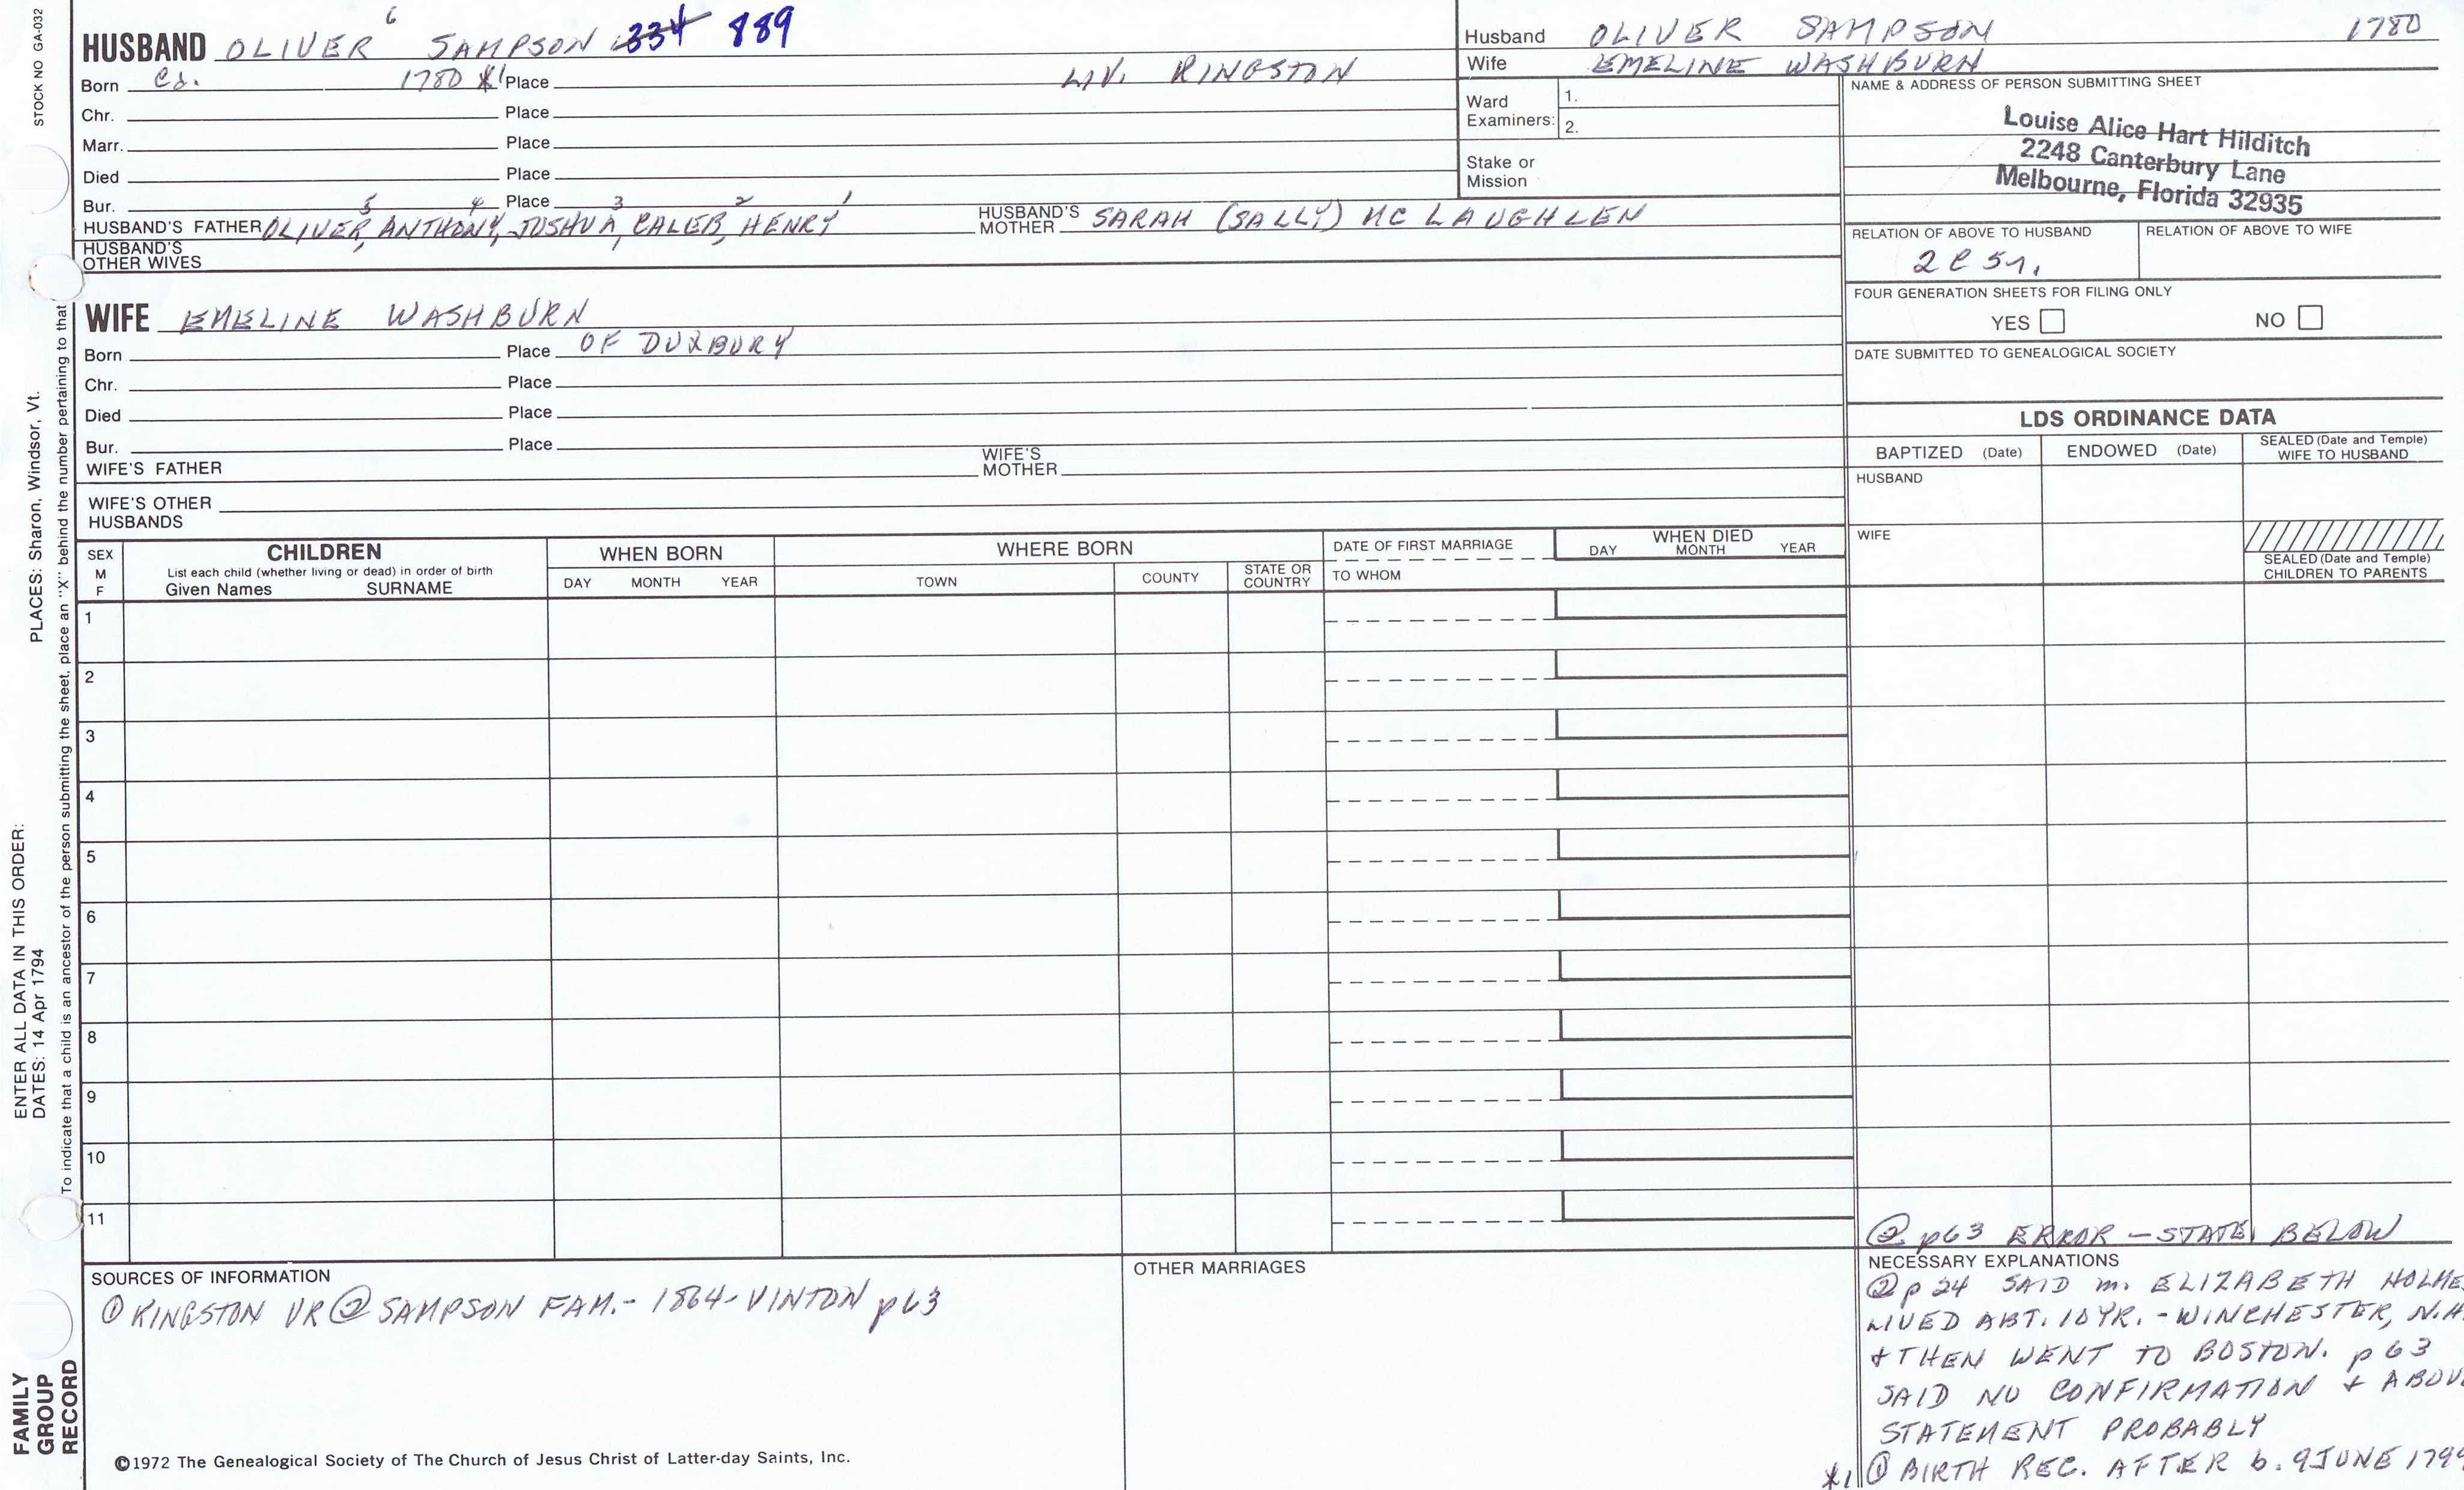 STOCK NO GA-032
PLACES: Sharon, Windsor, Vt.
ENTER ALL DATA IN THIS ORDER:
DATES: 14 Apr 1794
To indicate that a child is an ancestor of the person submitting the sheet, place an "X" behind the number pertaining to that
FAMILY
GROUP
RECORD
6
HUSBAND OLIVER SAMPSON 334 889
Born Ca. 1780 *1 Place LIV. KINGSTON
Chr. Place
Marr. Place
Died Place
Bur. Place
5 4 3 2 1
HUSBAND'S FATHER OLIVER, ANTHONY, JOSHUA, CALEB, HENRY HUSBAND'S MOTHER SARAH (SALLY) MC LAUGHLEN
HUSBAND'S
OTHER WIVES
WIFE EMELINE WASHBURN
Born Place OF DUXBURY
Chr. Place
Died Place
Bur. Place
WIFE'S FATHER WIFE'S MOTHER
WIFE'S OTHER
HUSBANDS
Husband OLIVER SAMPSON 1780
Wife EMELINE WASHBURN
Ward
Examiners:
1.
2.
Stake or
Mission
NAME & ADDRESS OF PERSON SUBMITTING SHEET
Louise Alice Hart Hilditch
2248 Canterbury Lane
Melbourne, Florida 32935
RELATION OF ABOVE TO HUSBAND RELATION OF ABOVE TO WIFE
2 C 5
FOUR GENERATION SHEETS FOR FILING ONLY
YES NO
DATE SUBMITTED TO GENEALOGICAL SOCIETY
LDS ORDINANCE DATA
BAPTIZED (Date) ENDOWED (Date) SEALED (Date and Temple)
WIFE TO HUSBAND
HUSBAND
WIFE
SEALED (Date and Temple)
CHILDREN TO PARENTS
SEX
M
F
CHILDREN
List each child (whether living or dead) in order of birth
Given Names SURNAME
WHEN BORN
DAY MONTH YEAR
WHERE BORN
TOWN COUNTY STATE OR COUNTRY
DATE OF FIRST MARRIAGE
TO WHOM
WHEN DIED
DAY MONTH YEAR
1
2
3
4
5
6
7
8
9
10
11
SOURCES OF INFORMATION
① KINGSTON VR ② SAMPSON FAM. - 1864 - VINTON p63
OTHER MARRIAGES
② p63 ERROR - STATE BELOW
NECESSARY EXPLANATIONS
② p 24 SAID m. ELIZABETH HOLME
LIVED ABT. 10 YR. - WINCHESTER, N.H.
+ THEN WENT TO BOSTON. p 63
SAID NO CONFIRMATION + ABOV
STATEMENT PROBABLY
*1 ① BIRTH REC. AFTER b. 9 JUNE 1799
©1972 The Genealogical Society of The Church of Jesus Christ of Latter-day Saints, Inc.